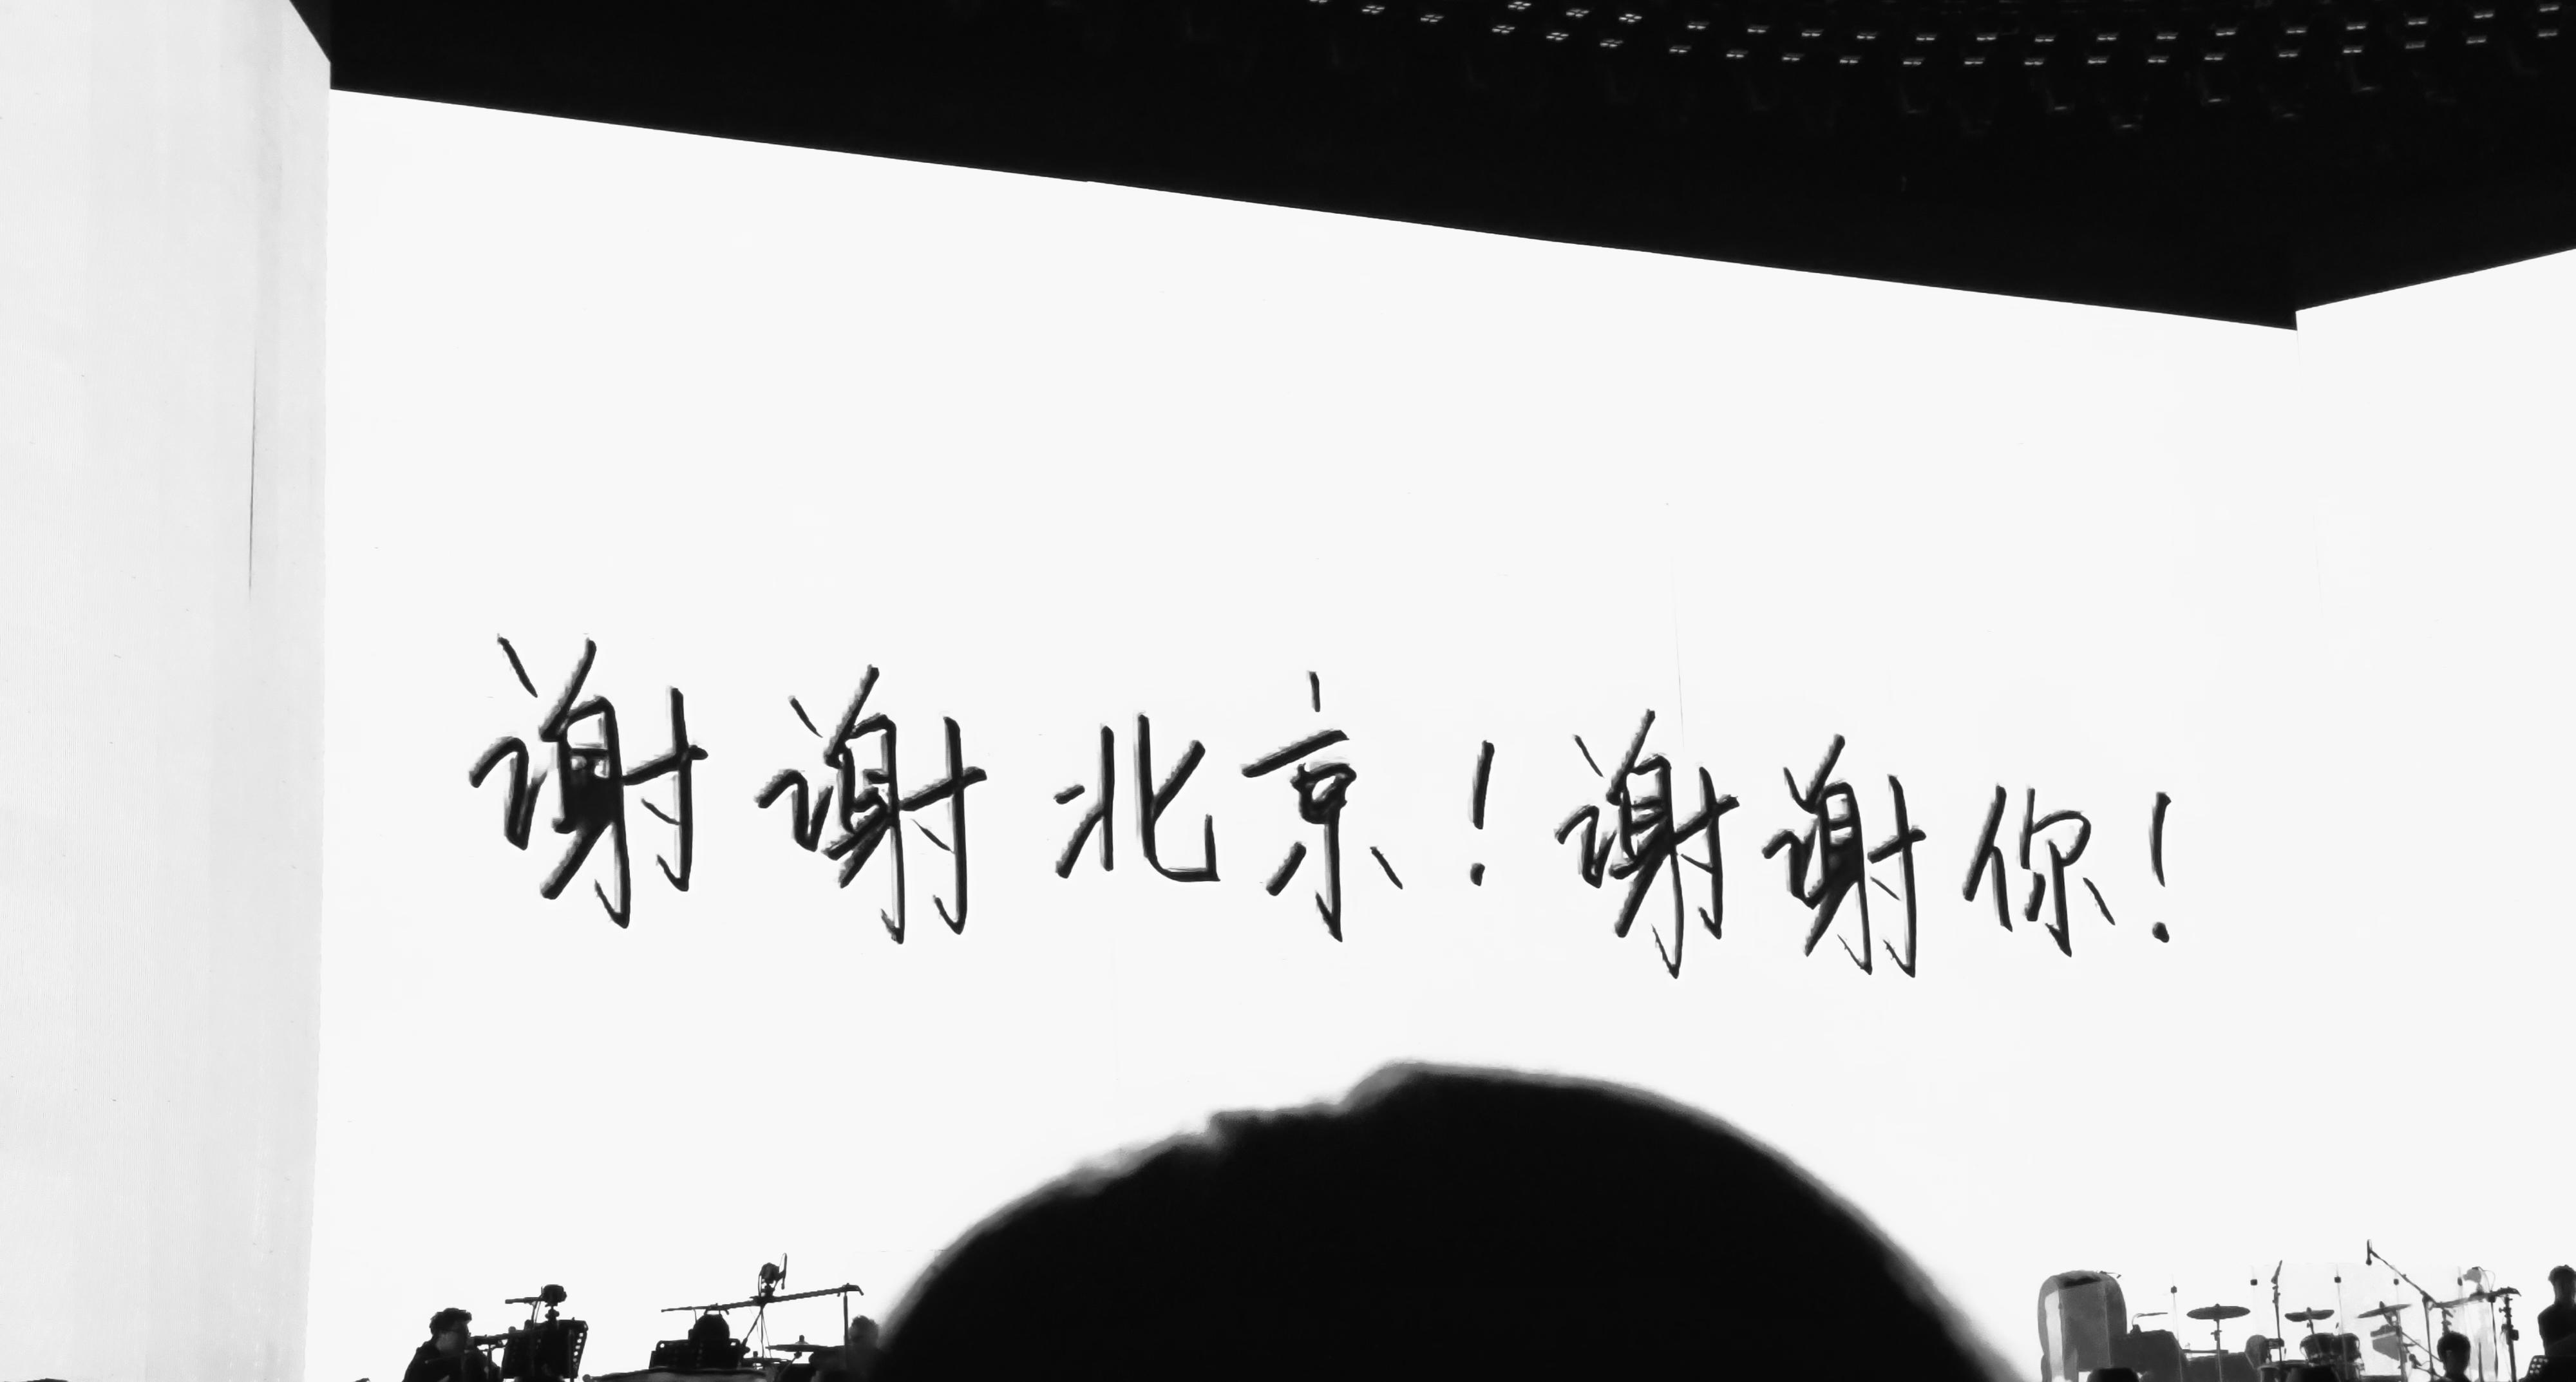 谢谢北京！谢谢你！